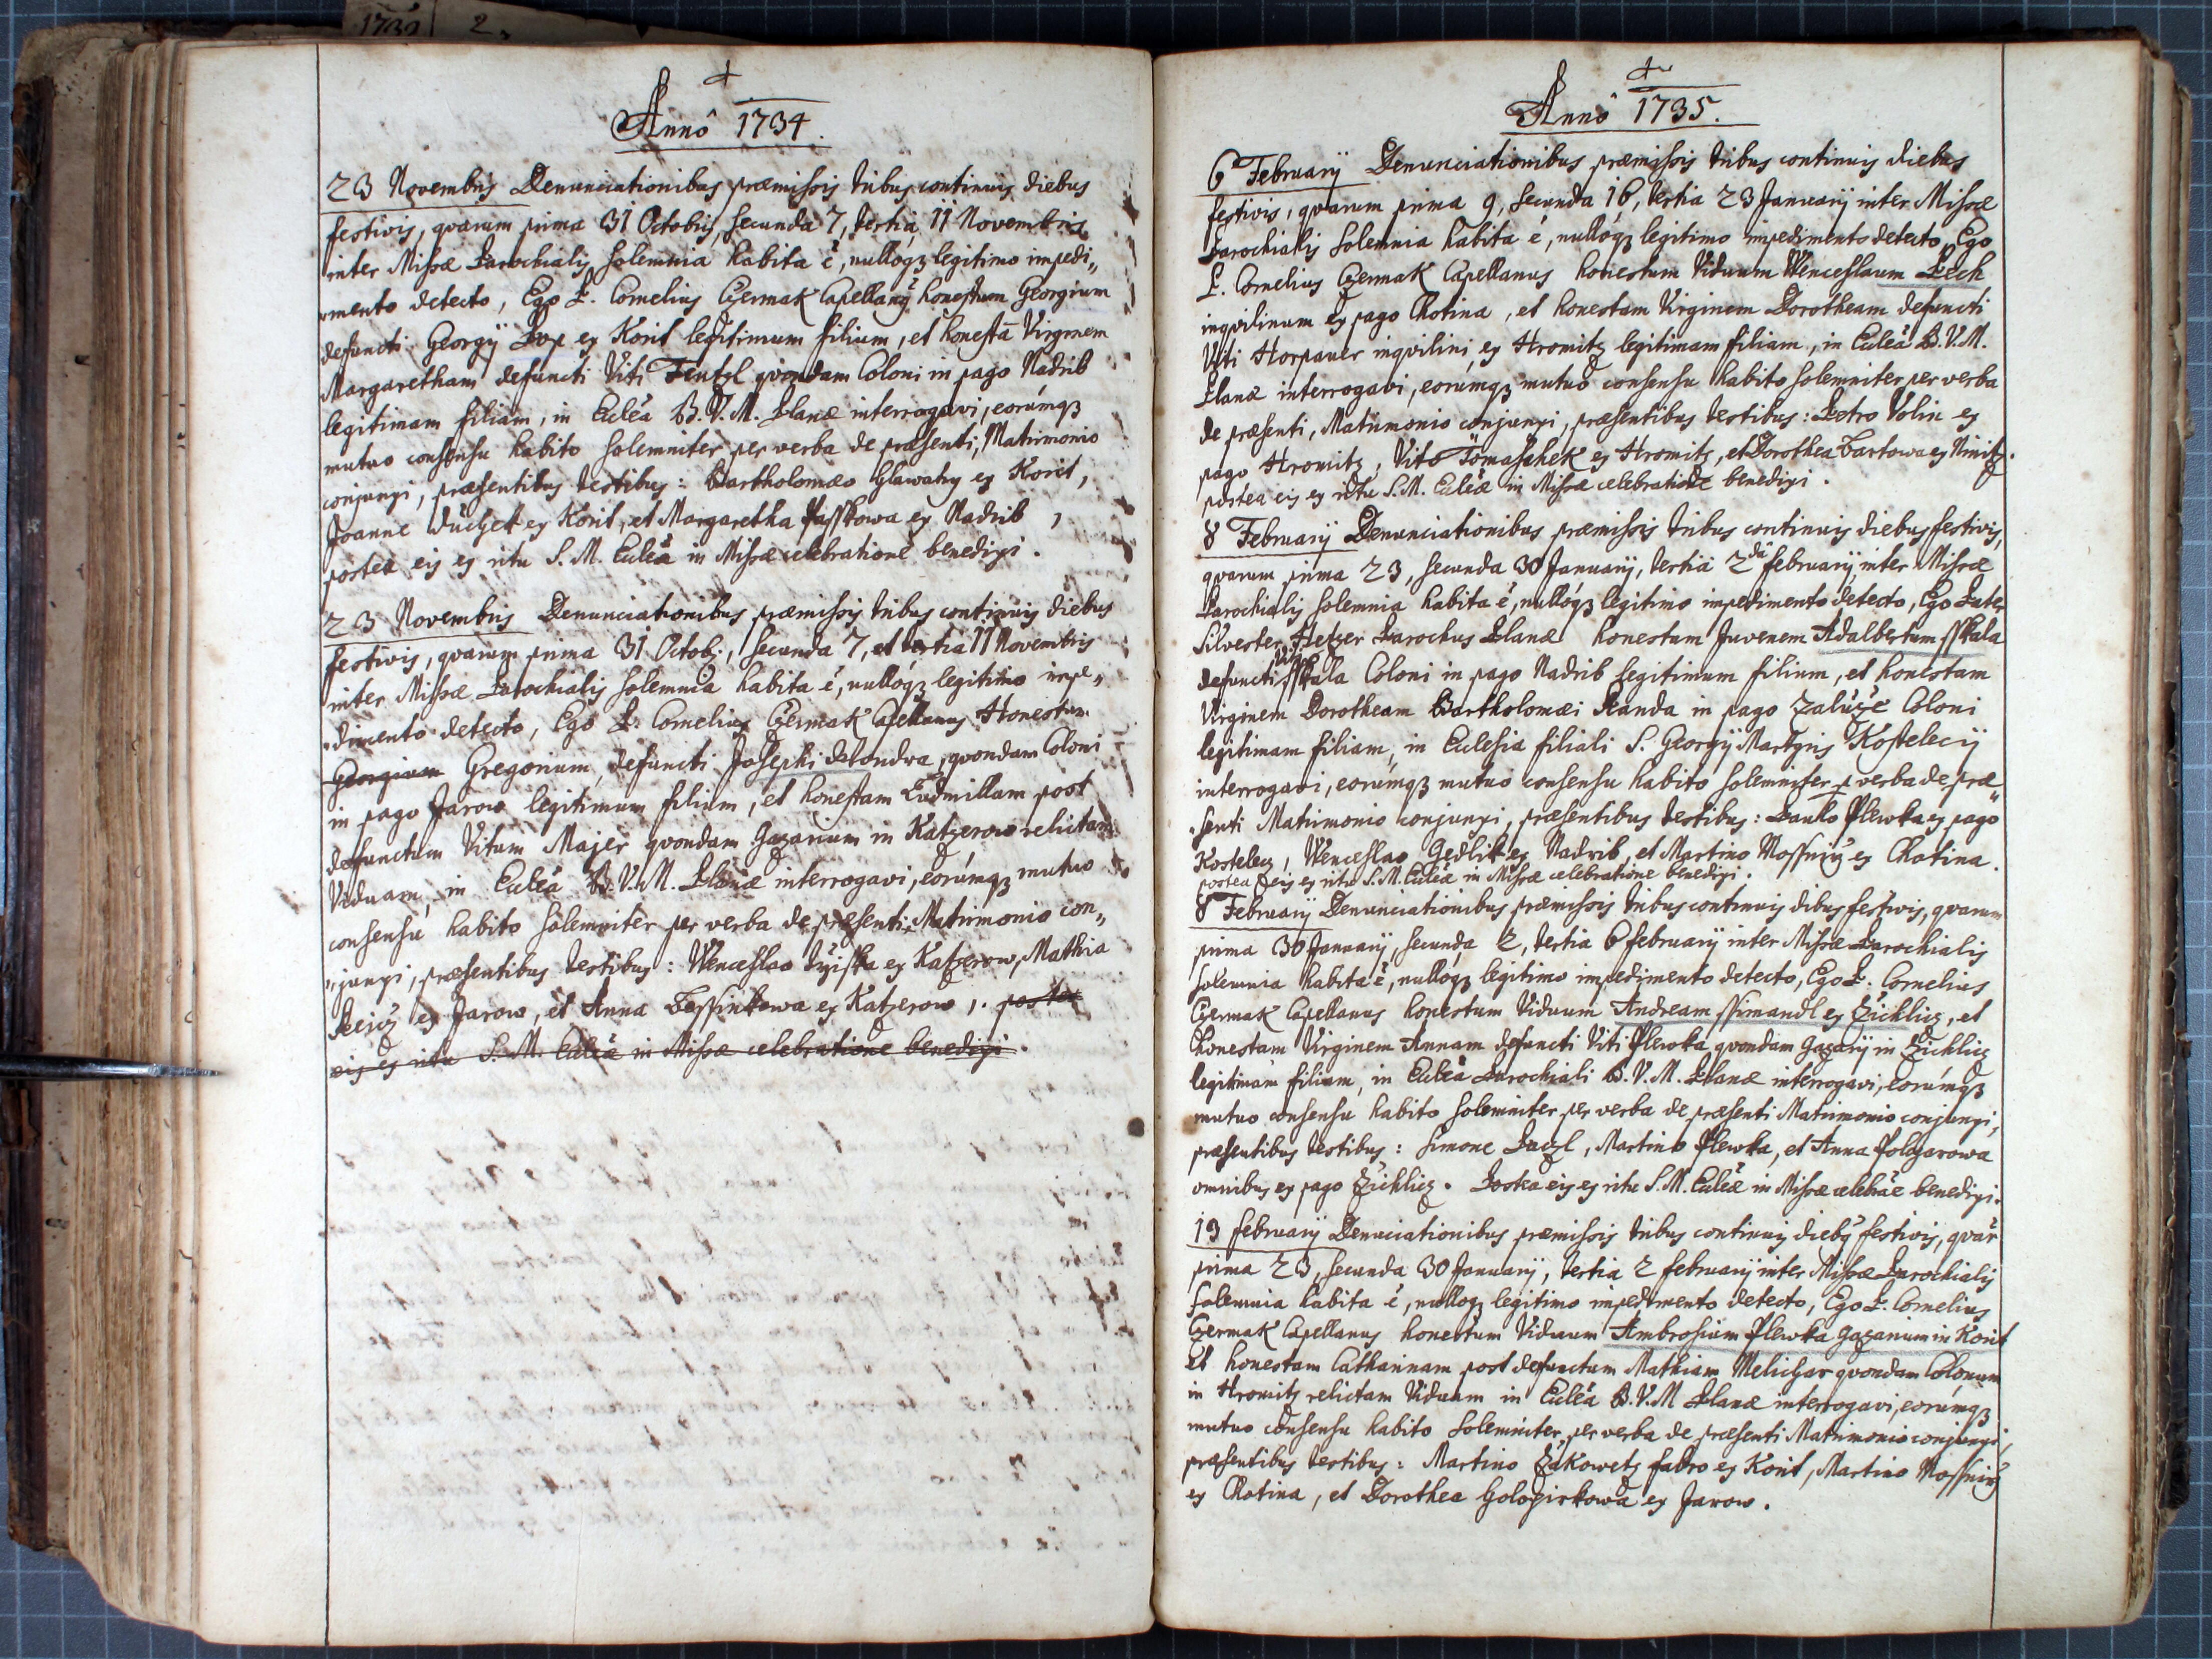 1732 2.
Annô 1734.
23 Novembris Denunciationibus præmissis tribus continuis diebus
festivis, quarum prima 31 Octobris, secunda 7, tertia 11 Novembris
inter Missæ Parochialis solemnia habita ẽ, nullóq₃ legitimo impedi„
„mento detecto, Ego P. Cornelius Czermak Capellanꝰ honestum Georgium
defuncti Georgÿ Pop ex Korit legitimum filium, et honestã Virginem
Margaretham defuncti Viti Tentzl quondam Coloni in pago Nadrib
legitimam filiam, in Ecclẽa B.V.M. Planæ interrogavi, eorúmq₃
mutuo consensu habito solemniter per verba de præsenti, Matrimonio
conjunxi, præsentibus testibus: Bartholomæo Hlawaty ex Korit,
Joanne Duchek ex Korit, et Margaretha Passkowa ex Nadrib,
postea eis ex ritu S.M. Ecclẽæ in Missæ celebratione benedixi.
23 Novembris Denunciationibus præmissis tribus continuis diebus
festivis, quarum prima 31 Octob:, secunda 7, et tertia 11 Novembris
inter Missæ Parochialis solemnia habita ẽ, nullóq₃ legitimo impe„
„dimento detecto, Ego P. Cornelius Czermak Capellanus Honestum
Georgium Gregorium, defuncti Josephi Delondra, quondam Coloni
in pago Jarow legitimum filium, et honestam Ludmillam post
defunctum Vitum Majer quondam Gazarium in Katzerow relictam
Viduam, in Ecclẽa B.V.M. Planæ interrogavi, eorúmq₃ mutuo
consensu habito solemniter per verba de præsenti, Matrimonio con„
„junxi, præsentibus testibus: Wenceslao ex Katzerow, Mathia
ex Jarow, et Anna Bessinkowa ex Katzerow, postea
eis ex ritu S.M. Ecclẽæ in Missæ celebratione benedixi.
Annô 1735.
6 Februarÿ Denunciationibus præmissis tribus continuis diebus
festivis, quarum prima 9, secunda 16, tertia 23 Januarÿ inter Missæ
Parochialis solemnia habita ẽ, nullóq₃ legitimo impedimento detecto, Ego
P. Cornelius Czermak Capellanus honestum Viduum Wenceslaum Pech
inquilinum ex pago Chotina, et honestam Virginem Dorotheam defuncti
Viti Horpauer inquilini ex Hromitz legitimam filiam, in Ecclẽa B.V.M.
Planæ interrogavi, eorúmq₃ mutuo consensu habito solemniter per verba
de præsenti, Matrimonio conjunxi, præsentibus testibus: Petro Volin ex
pago Hromitz, Vito Tomaschek ex Hromitz, et Dorothea Bartowa ex Ninitz.
postea eis ex ritu S.M. Ecclẽæ in Missæ celebratione benedixi.
8 Februarÿ Denunciationibus præmissis tribus continuis diebus festivis,
quarum prima 23, secunda 30 Januarÿ, tertia 2da februarÿ inter Missæ
Parochialis solemnia habita ẽ, nullóq₃ legitimo impedimento detecto, Ego Pater
Silvester Hetzer Parochus Planæ honestum Juvenem Adalbertum Sskala
defuncti Viti Sskala Coloni in pago Nadrib legitimum filium, et honestam
Virginem Dorotheam Bartholomæi Standa in pago Zaluže Coloni
legitimam filiam, in Ecclesia filiali S. Georgÿ Martyris Kostelecÿ
interrogavi, eorúmq₃ mutuo consensu habito solemniter p verba de præ„
„senti Matrimonio conjunxi, præsentibus testibus: Paulo Plewka ex pago
Kostelecz, Wenceslao Gedlik ex Nadrib, et Martino Mossnicž ex Chotina.
postea eis ex ritu S.M. Ecclẽæ in Missæ celebratione benedixi.
8 Februarÿ Denunciationibus præmissis tribus continuis dibus festivis, quarum
prima 30 Januarÿ, secunda 2, tertia 6 februarÿ inter Missæ Parochialis
solemnia habita ẽ, nullóq₃ legitimo impedimento detecto, Ego P. Cornelius
Czermak Capellanus honestum Viduum Andream Ssimandl ex Žichlicz, et
honestam Virginem Annam defuncti Viti Plewka quondam Gazarÿ in Žichlicz
legitimam filiam, in Ecclẽa Parochiali B.V.M. Planæ interrogavi, eorúmq₃
mutuo consensu habito solemniter per verba de præsenti Matrimonio conjunxi,
præsentibus testibus: Simone Paczl, Martino Plewka, et Anna Polczarowa
omnibus ex pago Žichlicz. Postea eis ex ritu S.M. Ecclẽæ in Missæ celebrãe benedixi.
19 februarÿ Denunciationibus præmissis tribus continuis diebꝰ festivis, quar̃
prima 23, secunda 30 Januarÿ, tertia 2 februarÿ inter Missæ Parochialis
solemnia habita ẽ, nullóq₃ legitimo impedimento detecto, Ego P. Cornelius
Czermak Capellanus honestum Viduum Ambrosium Plewka Gazarium in Korit
et honestam Catharinam post defunctum Mathiam Melichar quondam Colonum
in Hromitz relictam Viduam in Ecclẽa B.V.M Planæ interrogavi, eorúmq₃
mutuo consensu habito solemniter per verba de præsenti Matrimonio conjunxi,
præsentibus testibus: Martino Žakowetz fabro ex Korit, Martino Mossnicž
ex Chotina, et Dorothea Holozirkowa ex Jarow.